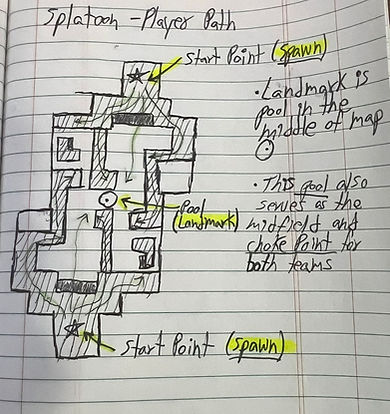 Splatoon - Player Path
Start Point (spawn)
• Landmark is
pool in the
middle of map
• This pool also
serves as the
midfield and
choke Point for
both teams
Pool
(Landmark)
Start Point (spawn)